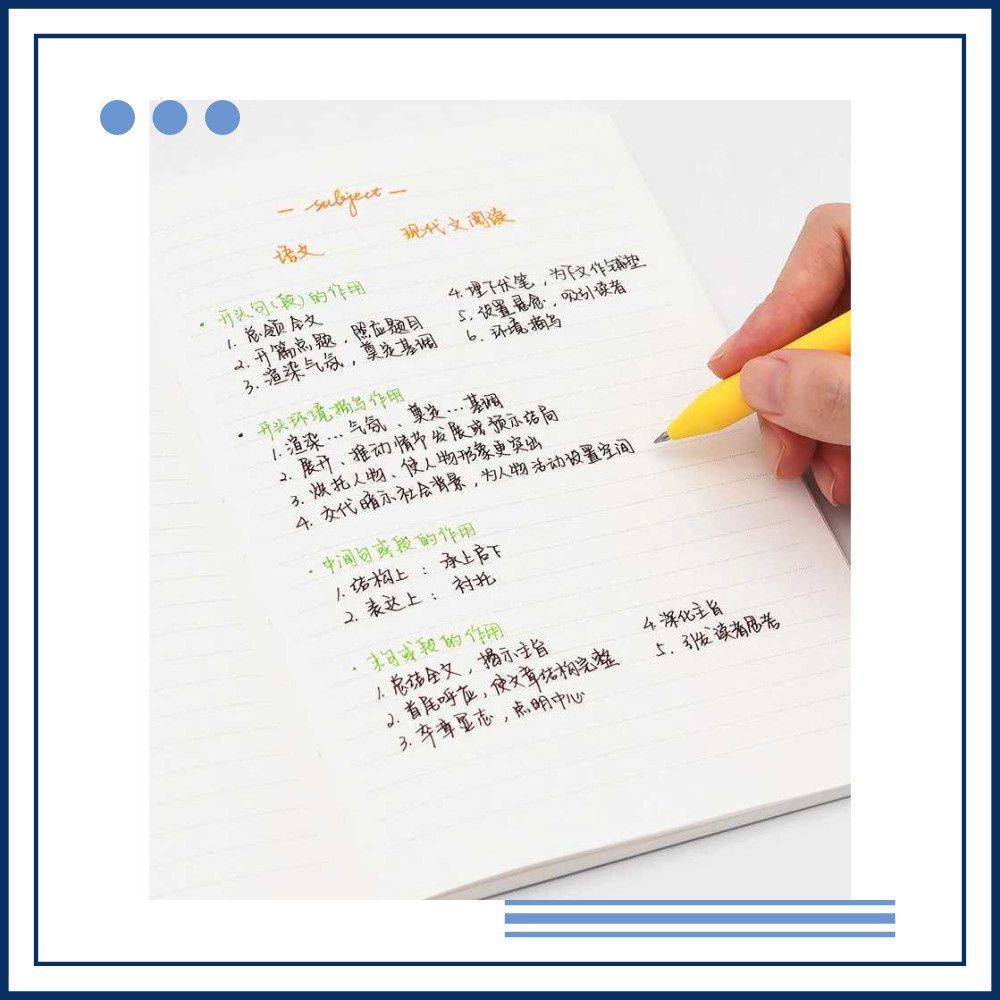 — subject —
语文 现代文阅读
· 开头句(段)的作用
1. 总领全文
2. 开篇点题，照应题目
3. 渲染气氛，奠定基调
4. 埋下伏笔，为下文作铺垫
5. 设置悬念，吸引读者
6. 环境描写
· 开头环境描写作用
1. 渲染…气氛、奠定…基调
2. 展开、推动情节发展或预示结局
3. 烘托人物、使人物形象更突出
4. 交代暗示社会背景，为人物活动设置空间
· 中间句或段的作用
1. 结构上：承上启下
2. 表达上：衬托
· 末句或段的作用
1. 总结全文，揭示主旨
2. 首尾呼应，使文章结构完整
3. 卒章显志，点明中心
4. 深化主旨
5. 引发读者思考